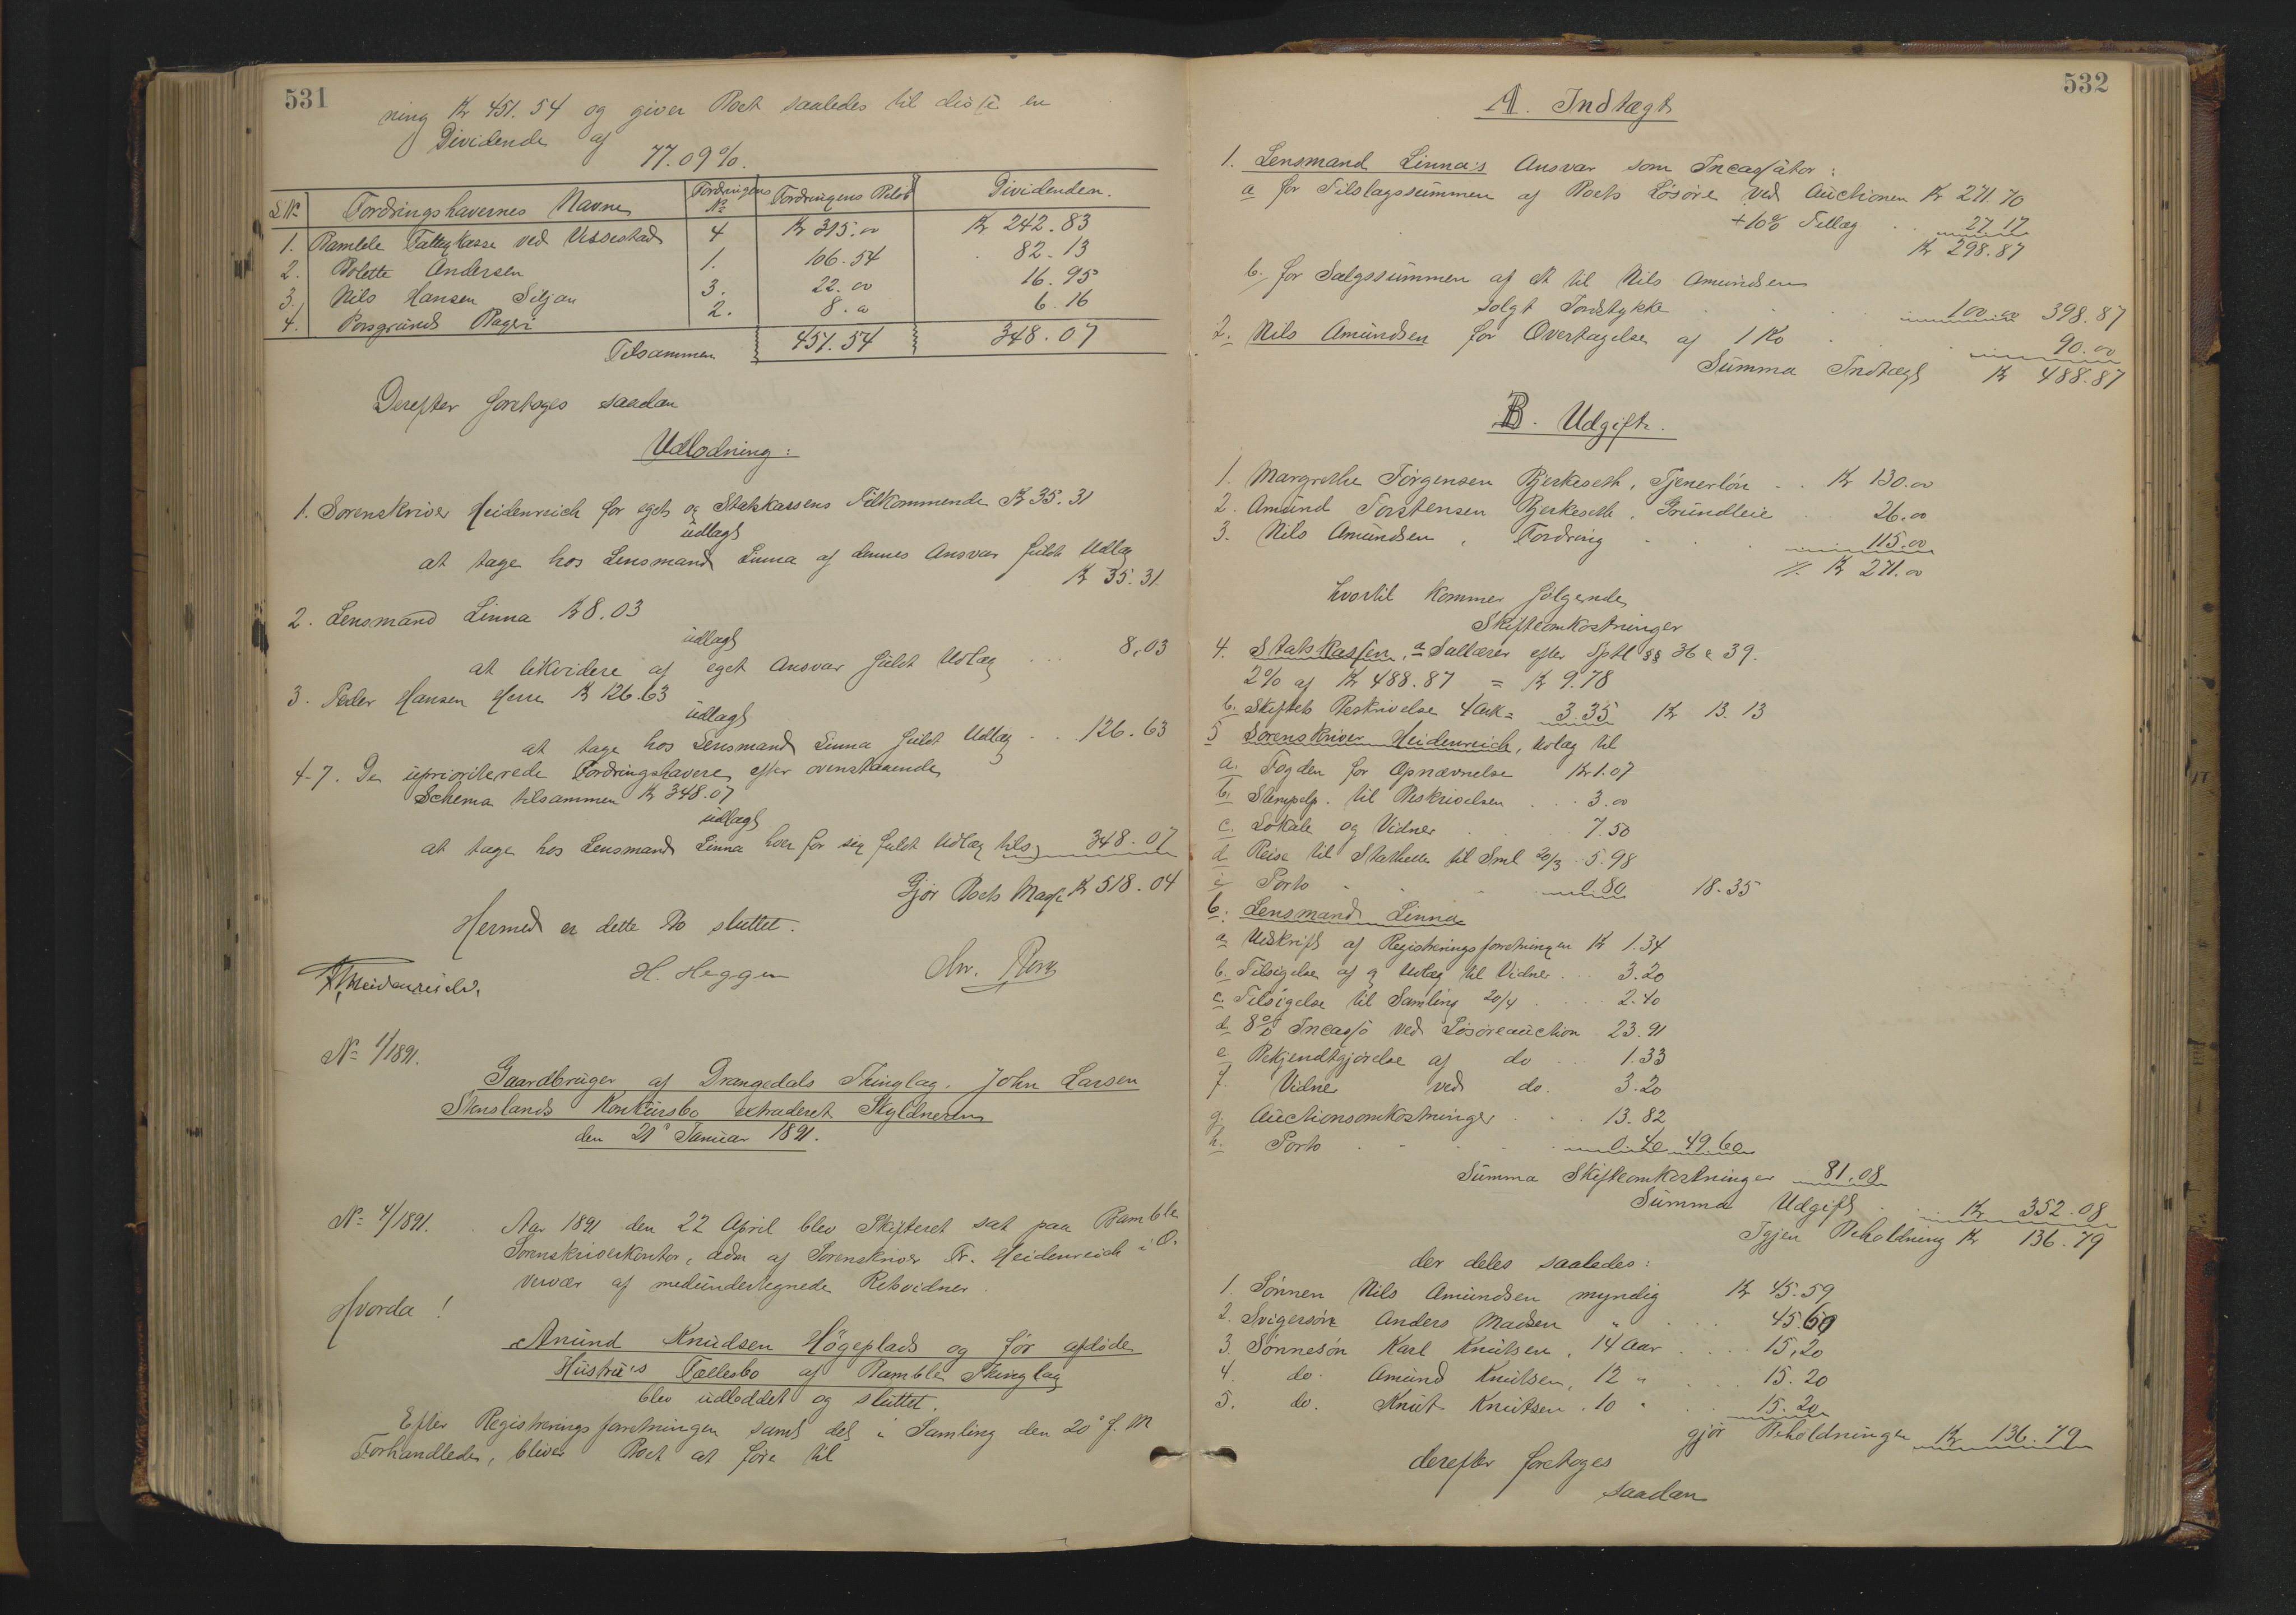 531
ning Kr 451.54 og giver Boet saaledes til disse en
Dividende af
77.09%.
L.No Fordringshavernes Navne Fordringens No Fordringens Beløb Dividenden.
1. Bamble Fattigkasse ved Vissestad 4 Kr 315.00 Kr 242.83
2. Bolette Andersen 1. 106.54 82.13
3. Nils Hansen Siljan 3. 22.00 16.95
4. Porsgrunds Bageri 2. 8.00 6.16
Tilsammen 451.54 348.07
Derefter foretoges saadan
Udlodning:
1. Sorenskriver Heidenreich for eget og Statskassens Tilkommende Kr 35.31
udlagt
at tage hos Lensmand Linna af dennes Ansvar fuldt Udlæg
Kr 35.31
2. Lensmand Linna Kr 8.03
udlagt
at likvidere af eget Ansvar fuldt Udlæg ... 8,03
3. Peder Hansen Herre Kr 126.63
udlagt
at tage hos Lensmand Linna fuldt Udlæg .. 126.63
4-7. De upriorilerede Fordringshavere efter ovenstaaende
Schema tilsammen Kr 348.07
udlagt
at tage hos Lensmand Linna hver for sig fuldt Udlæg tils. 348.07
Gjør Boets Masse Kr 518.04
Hermed er dette Bo sluttet.
Heidenreich. H. Heggen Chr.
No 1/1891.
Gaardbruger af Drangedals Thinglag, John Larsen
Stenslands Konkursbo extraderet Skyldneren
den 21' Januar 1891.
No 4/1891. Aar 1891 den 22 April blev Skifteret sat paa Bamble
Sorenskriverkontor, adm af Sorenskriver Fr. Heidenreich i O-
vervær af medundertegnede Retsvidner.
Hvorda!
Amund Knudsen Høgeplads og før afdøde
Hustru's Fællesbo af Bamble Thinglag
blev udloddet og sluttet.
Efter Registreringsforretningen samt det i Samling den 20' f. M
Forhandlede, bliver Boet at føre til
532
A. Indtægt
1. Lensmand Linna's Ansvar som Incassator:
a for Tilslagssummen af Boets Løsøre ved Auctionen Kr 271.70
+10% Tillæg .. 27.17
Kr 298.87
b. for Salgssummen af et til Nils Amundsen
solgt Jordstykke 100.00 398.87
2. Nils Amundsen for Overtagelse af 1 Ko 90.00
Summa Indtægt Kr 488.87
B. Udgift.
1. Margrethe Jørgensen Bjerkeseth, Tjenerløn .. Kr 130.00
2. Amund Torstensen Bjerkeseth, Grundleie 26.00
3. Nils Amundsen, Fordring 115.00
Kr 271.00
hvortil kommer følgende
Skifteomkostninger
4. Statskassen, a Sallærer efter Sptl §§ 36 & 39.
2% af Kr 488.87 = Kr 9.78
b. Skiftets Beskrivelse 4 Ark = 3.35 Kr 13.13
5 Sorenskriver Heidenreich, Udlæg til
a. Fogden for Opnævnelse Kr 1.07
b. Stempelp. til Beskrivelsen ... 3.00
c. Lokale og Vidner ... 7.50
d. Reise til Stathelle til Sml 20/3 . 5.98
e Porto 0.80 18.35
6. Lensmand Linna
a Udskrift af Registreringsforretningen Kr 1.34
b. Tilsigelse af og Udlæg til Vidner .. 3.20
c. Tilsigelse til Samling 20/4 .... 2.40
d. 8% Incasso ved Løsøreauction 23.91
e Bekjendtgjørelse af do ... 1.33
f. Vidner ved do. 3.20
g. Auctionsomkostninger .. 13.82
h. Porto 0.40 49.60
Summa Skifteomkostninger 81.08
Summa Udgift Kr 352.08
Igjen Beholdning Kr 136.79
der deles saaledes:
1. Sønnen Nils Amundsen myndig Kr 45.59
2. Svigersøn Anders Madsen " 45.60
3. Sønnesøn Karl Knutsen, 14 Aar 15,20
4. do. Amund Knutsen, 12 " 15.20
5. do. Knut Knutsen. 10 " 15.20
gjør Beholdningen Kr 136.79
derefter foretoges
saadan